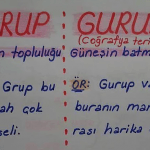 RUP
topluluğu
Grup bu
ah çok
seli.
GURU
(Coğrafya ter
Güneşin batm
ÖR: Gurup va
buranın man
rası harika